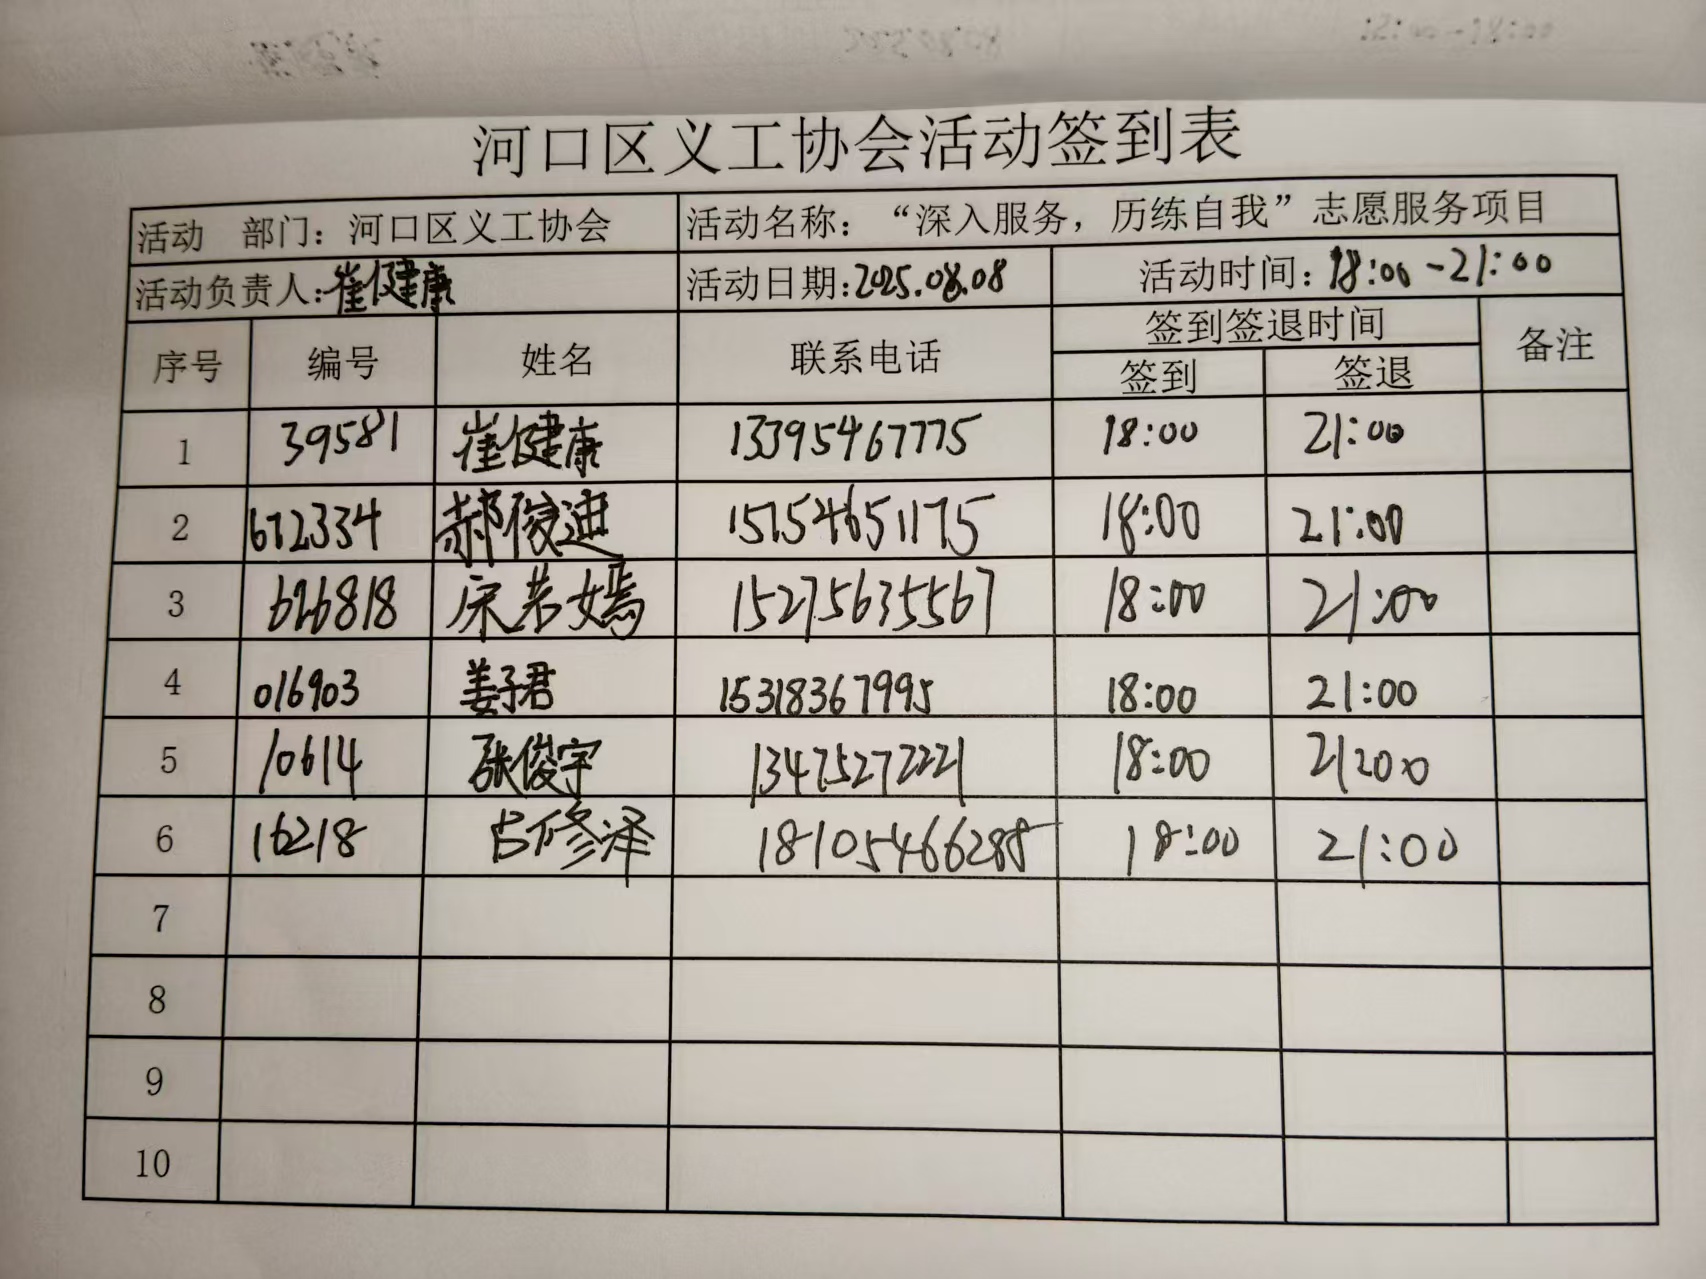 河口区义工协会活动签到表
活动 部门：河口区义工协会 活动名称：“深入服务，历练自我”志愿服务项目
活动负责人：崔健康 活动日期：2025.08.08 活动时间：18:00-21:00
序号 编号 姓名 联系电话 签到签退时间 备注
签到 签退
1 39581 崔健康 13395467775 18:00 21:00
2 672334 郝俊迪 15754651175 18:00 21:00
3 626818 宋若嫣 15275635567 18:00 21:00
4 016903 姜子君 15318367995 18:00 21:00
5 10614 张俊宇 13475272221 18:00 21:00
6 16218 古修泽 18105466288 18:00 21:00
7
8
9
10